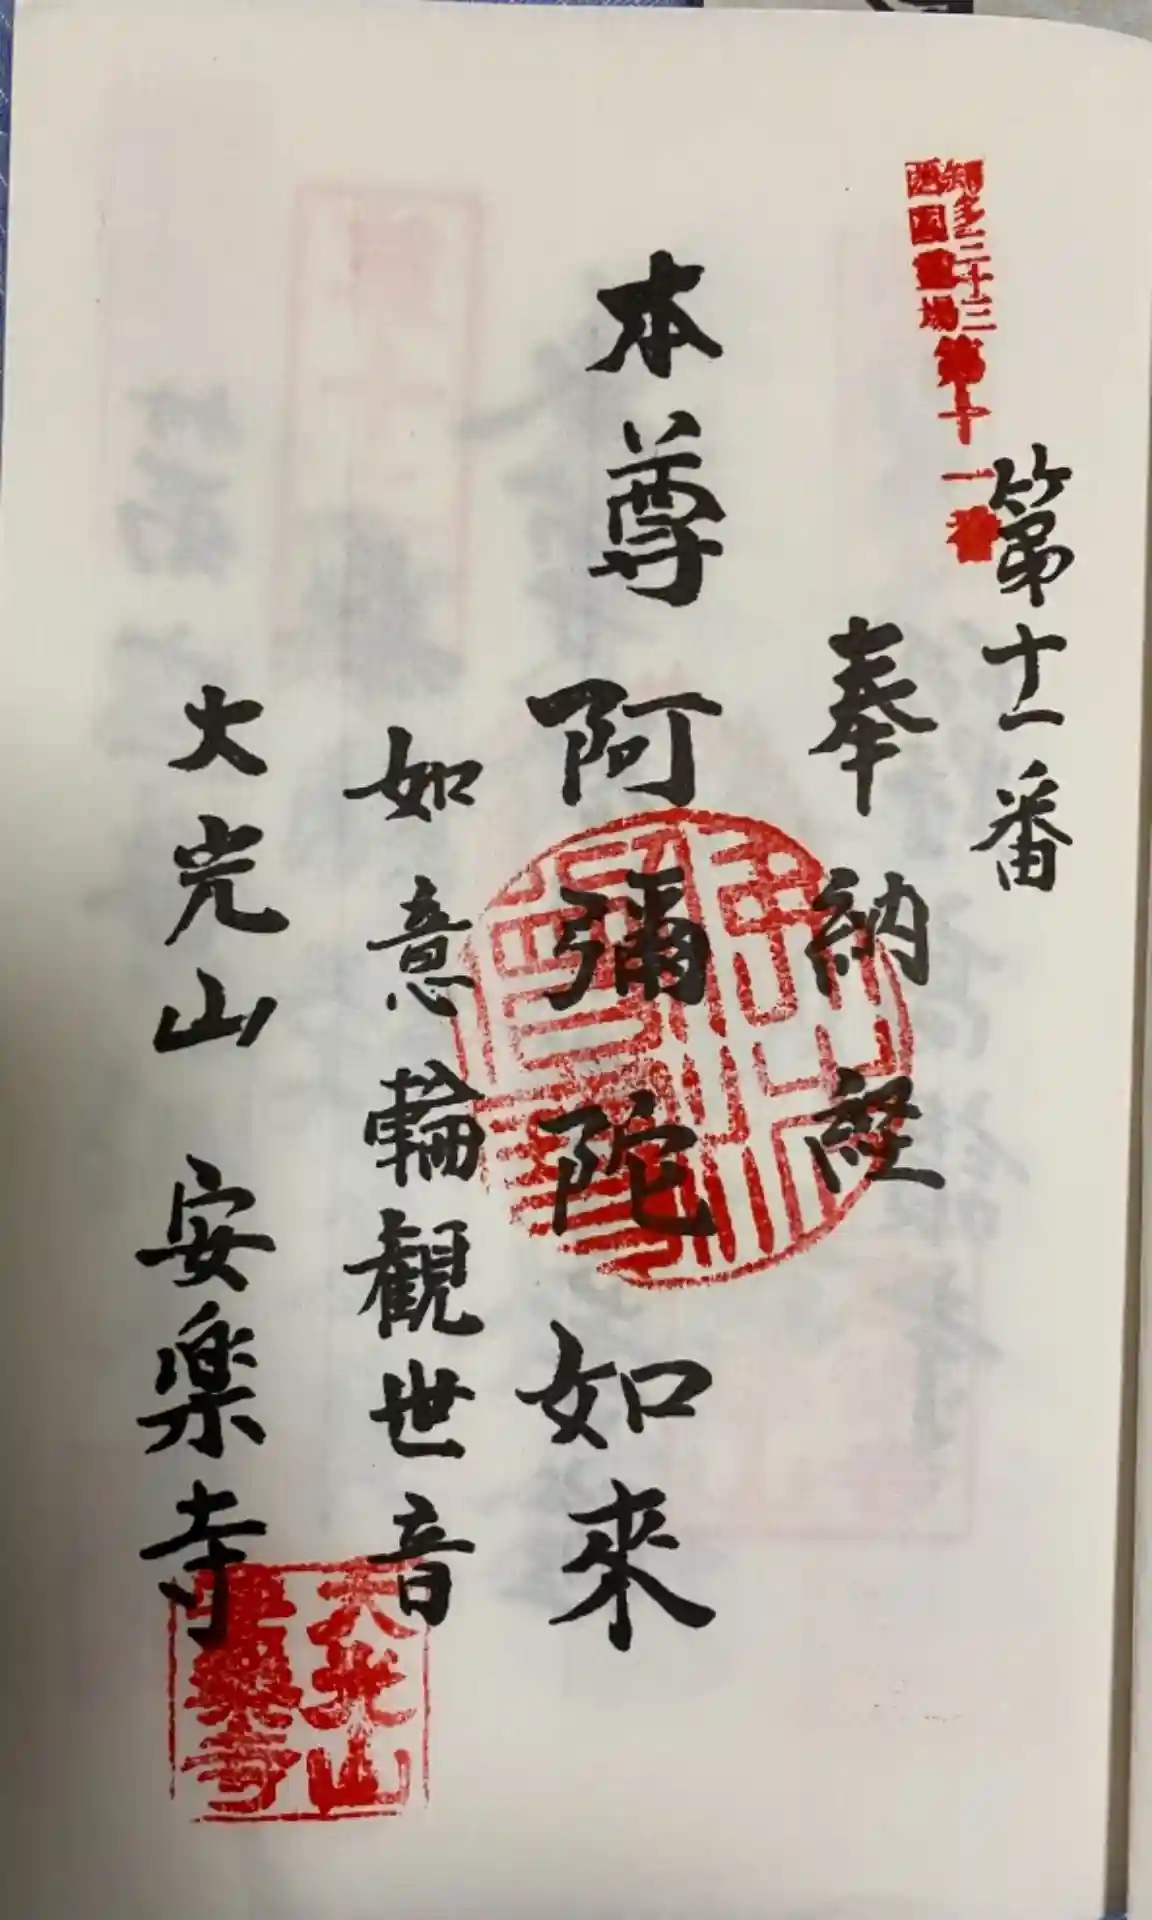 知多三十三
西国霊場
第十一番
第十一番
奉納経
本尊 阿彌陀如來
如意輪観世音
大光山 安楽寺
大光山
安樂寺